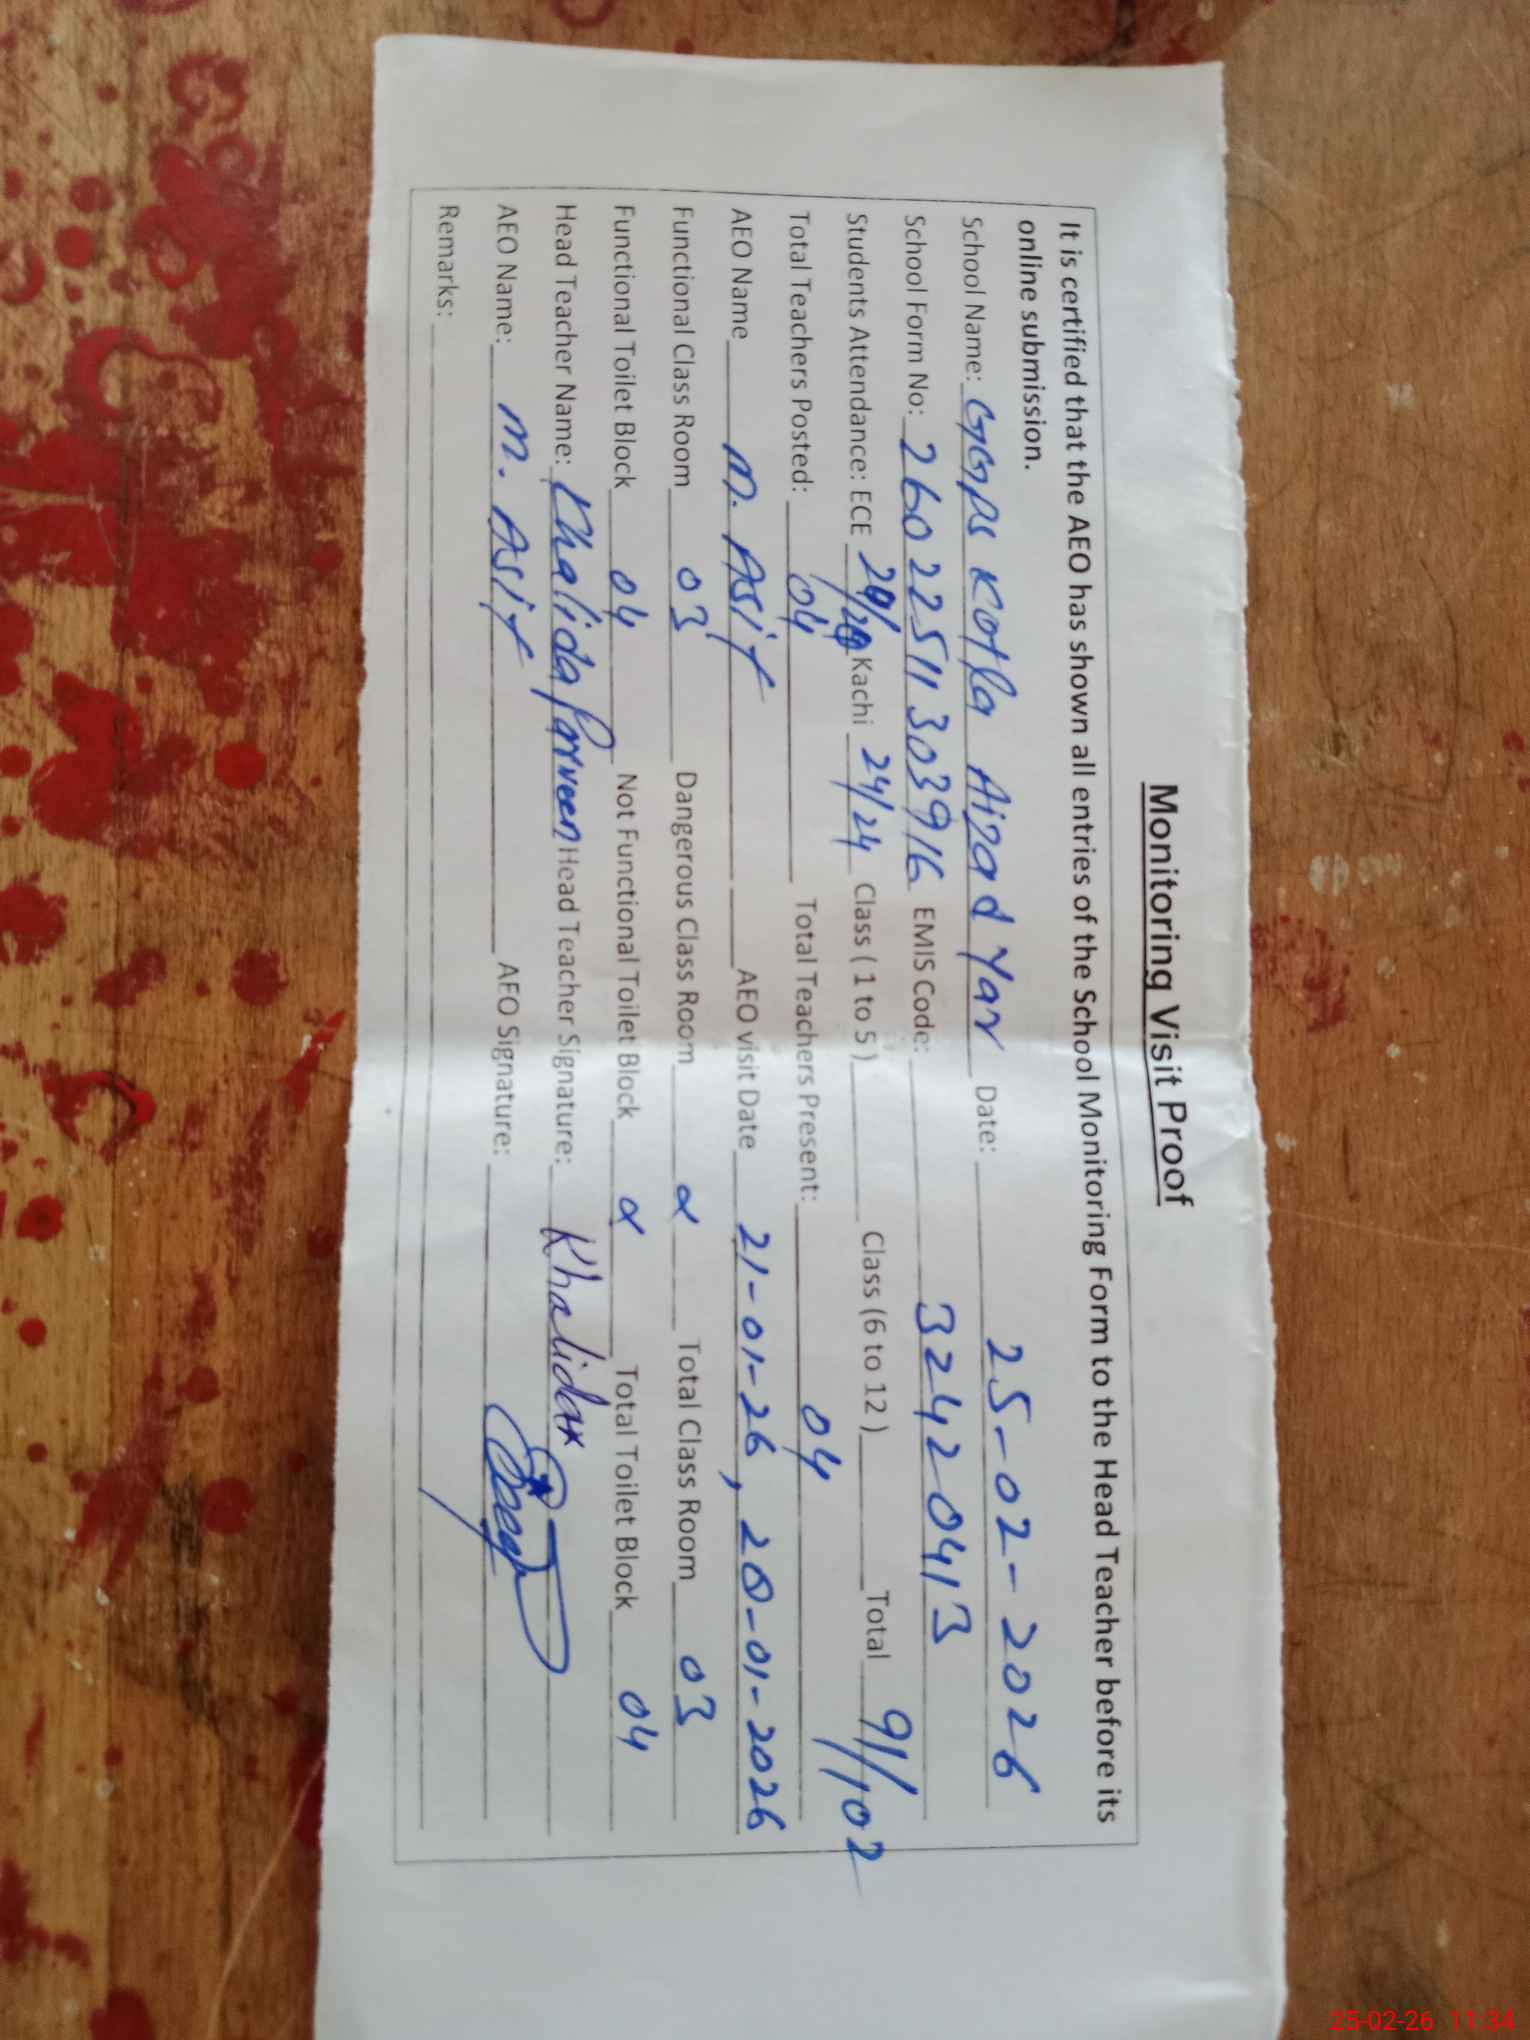 Monitoring Visit Proof
It is certified that the AEO has shown all entries of the School Monitoring Form to the Head Teacher before its
online submission.
School Name: GGPS Kotla Aizad Yar Date: 25-02-2026
School Form No: 26022511303916 EMIS Code: 32420413
Students Attendance: ECE Kachi 24/24 Class ( 1 to 5 ) Class (6 to 12 ) Total 91/102
Total Teachers Posted: 04 Total Teachers Present: 04
AEO Name M. Asif AEO visit Date 21-01-26, 20-01-2026
Functional Class Room 03 Dangerous Class Room α Total Class Room 03
Functional Toilet Block 04 Not Functional Toilet Block α Total Toilet Block 04
Head Teacher Name: Khalida Parveen Head Teacher Signature: Khalida
AEO Name: M. Asif AEO Signature:
Remarks:
25-02-26 11:34